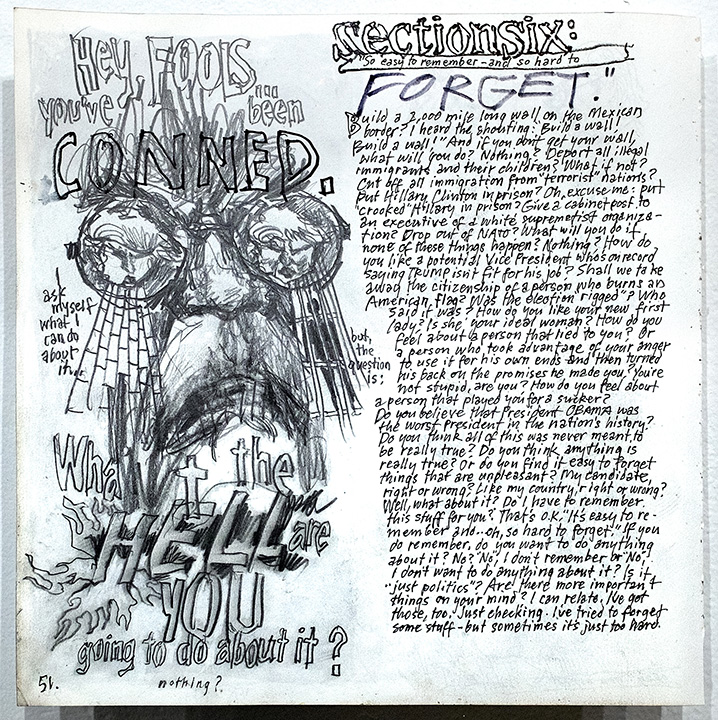 Hey, FOOLS...
you've been
CONNED.
ask
myself
what I
can do
about
it...
but,
the
question
is:
What the
HELL are
YOU
going to do about it?
nothing?
51.
section six:
"So easy to remember - and so hard to
FORGET."
Build a 2,000 mile long wall on the Mexican
border? I heard the shouting: Build a wall!
Build a wall!" And if you don't get your wall,
what will you do? Nothing? Deport all illegal
immigrants and their children? What if not?
Cut off all immigration from "terrorist" nations?
Put Hillary Clinton in prison? Oh, excuse me: put
"crooked" Hillary in prison? Give a cabinet post to
an executive of a white supremetist organiza-
tion? Drop out of NATO? What will you do if
none of these things happen? Nothing? How do
you like a potential Vice President who's on record
saying TRUMP isn't fit for his job? Shall we take
away the citizenship of a person who burns an
American flag? Was the election "rigged"? Who
said it was? How do you like your new first
lady? Is she your ideal woman? How do you
feel about a person that lied to you? Or
a person who took advantage of your anger
to use it for his own ends and then turned
his back on the promises he made you. You're
not stupid, are you? How do you feel about
a person that played you for a sucker?
Do you believe that President OBAMA was
the worst President in the nation's history?
Do you think all of this was never meant to
be really true? Do you think anything is
really true? Or do you find it easy to forget
things that are unpleasant? My candidate,
right or wrong? Like my country, right or wrong?
Well, what about it? Do I have to remember
this stuff for you? That's O.K. "It's easy to re-
member and... oh, so hard to forget." If you
do remember, do you want to do anything
about it? No? No, I don't remember or "No",
I don't want to do anything about it? Is it
"just politics"? Are there more important
things on your mind? I can relate. I've got
those, too. Just checking. I've tried to forget
some stuff - but sometimes it's just too hard.